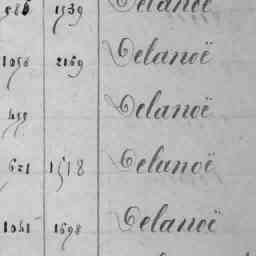 586 1539 Delanoë
1056 2169 Delanoë
455 Delanoë
621 1518 Delanoë
1041 1698 Delanoë